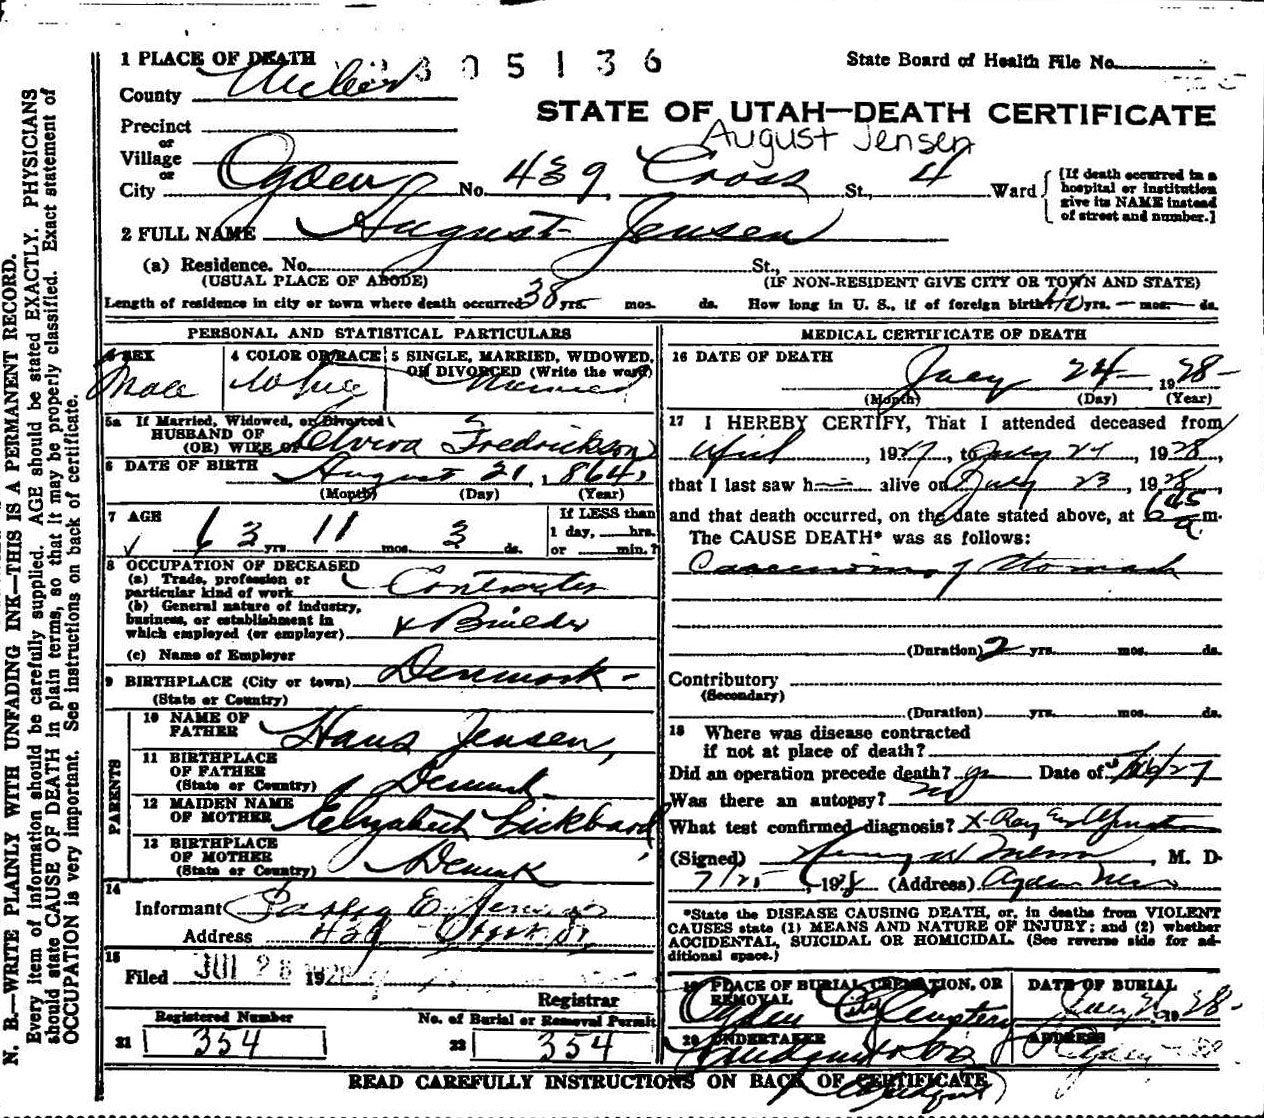 1 PLACE OF DEATH 305136
State Board of Health File No.
County Weber
STATE OF UTAH—DEATH CERTIFICATE
Precinct
or
August Jensen
Village
or
City Ogden No. 439 Cross St., 4 Ward
[If death occurred in a hospital or institution give its NAME instead of street and number.]
2 FULL NAME August Jensen
(a) Residence. No. St.,
(USUAL PLACE OF ABODE) (IF NON-RESIDENT GIVE CITY OR TOWN AND STATE)
Length of residence in city or town where death occurred 38 yrs. mos. ds. How long in U. S., if of foreign birth? 40 yrs. — mos. — ds.
PERSONAL AND STATISTICAL PARTICULARS
SEX 4 COLOR OR RACE 5 SINGLE, MARRIED, WIDOWED, OR DIVORCED (Write the word)
Male White Married
5a If Married, Widowed, or Divorced
HUSBAND OF
(OR) WIFE OF Elvira Fredrickson
6 DATE OF BIRTH August 21, 1864,
(Month) (Day) (Year)
7 AGE 63 yrs. 11 mos. 3 ds.
If LESS than
1 day, hrs.
or min.?
8 OCCUPATION OF DECEASED
(a) Trade, profession or
particular kind of work Contractor
(b) General nature of industry,
business, or establishment in
which employed (or employer) Builder
(c) Name of Employer
9 BIRTHPLACE (City or town) Denmark
(State or Country)
PARENTS
10 NAME OF
FATHER Hans Jensen,
11 BIRTHPLACE
OF FATHER
(State or Country) Denmark
12 MAIDEN NAME
OF MOTHER Elizabeth
13 BIRTHPLACE
OF MOTHER
(State or Country) Denmark
14
Informant E. Jensen
Address 439
15
Filed JUL 28 1928
Registrar
Registered Number No. of Burial or Removal Permit
21 354 22 354
MEDICAL CERTIFICATE OF DEATH
16 DATE OF DEATH July 24 1928
(Month) (Day) (Year)
17 I HEREBY CERTIFY, That I attended deceased from
April, 1927, to July 24, 1928,
that I last saw h alive on July 23, 1928,
and that death occurred, on the date stated above, at 645 a m.
The CAUSE DEATH* was as follows:
Carcinoma of Stomach
(Duration) 2 yrs. mos. ds.
Contributory
(Secondary)
(Duration) yrs. mos. ds.
18 Where was disease contracted
if not at place of death?
Did an operation precede death? yes Date of
Was there an autopsy? no
What test confirmed diagnosis? X-Ray
(Signed) , M. D.
7/25, 1928 (Address) Ogden
*State the DISEASE CAUSING DEATH, or, in deaths from VIOLENT
CAUSES state (1) MEANS AND NATURE OF INJURY; and (2) whether
ACCIDENTAL, SUICIDAL OR HOMICIDAL. (See reverse side for ad-
ditional space.)
19 PLACE OF BURIAL, CREMATION, OR
REMOVAL
Ogden City Cemetery
DATE OF BURIAL
July 1928
20 UNDERTAKER ADDRESS
Ogden
READ CAREFULLY INSTRUCTIONS ON BACK OF CERTIFICATE
N. B.—WRITE PLAINLY WITH UNFADING INK—THIS IS A PERMANENT RECORD.
Every item of information should be carefully supplied. AGE should be stated EXACTLY. PHYSICIANS
should state CAUSE OF DEATH in plain terms, so that it may be properly classified. Exact statement of
OCCUPATION is very important. See instructions on back of certificate.